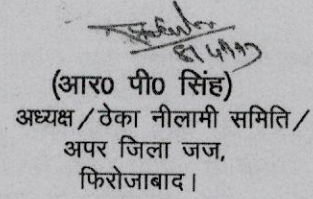 (आर0 पी0 सिंह)
अध्यक्ष/ठेका नीलामी समिति/
अपर जिला जज,
फिरोजाबाद।